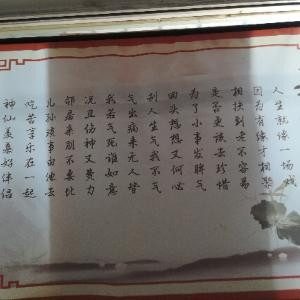 人生就像一场戏
因为有缘才相聚
相扶到老不容易
是否更该去珍惜
为了小事发脾气
回头想想又何必
别人生气我不气
气出病来无人替
我若气死谁如意
况且伤神又费力
邻居亲朋不要比
儿孙琐事由他去
吃苦享乐在一起
神仙羡慕好伴侣